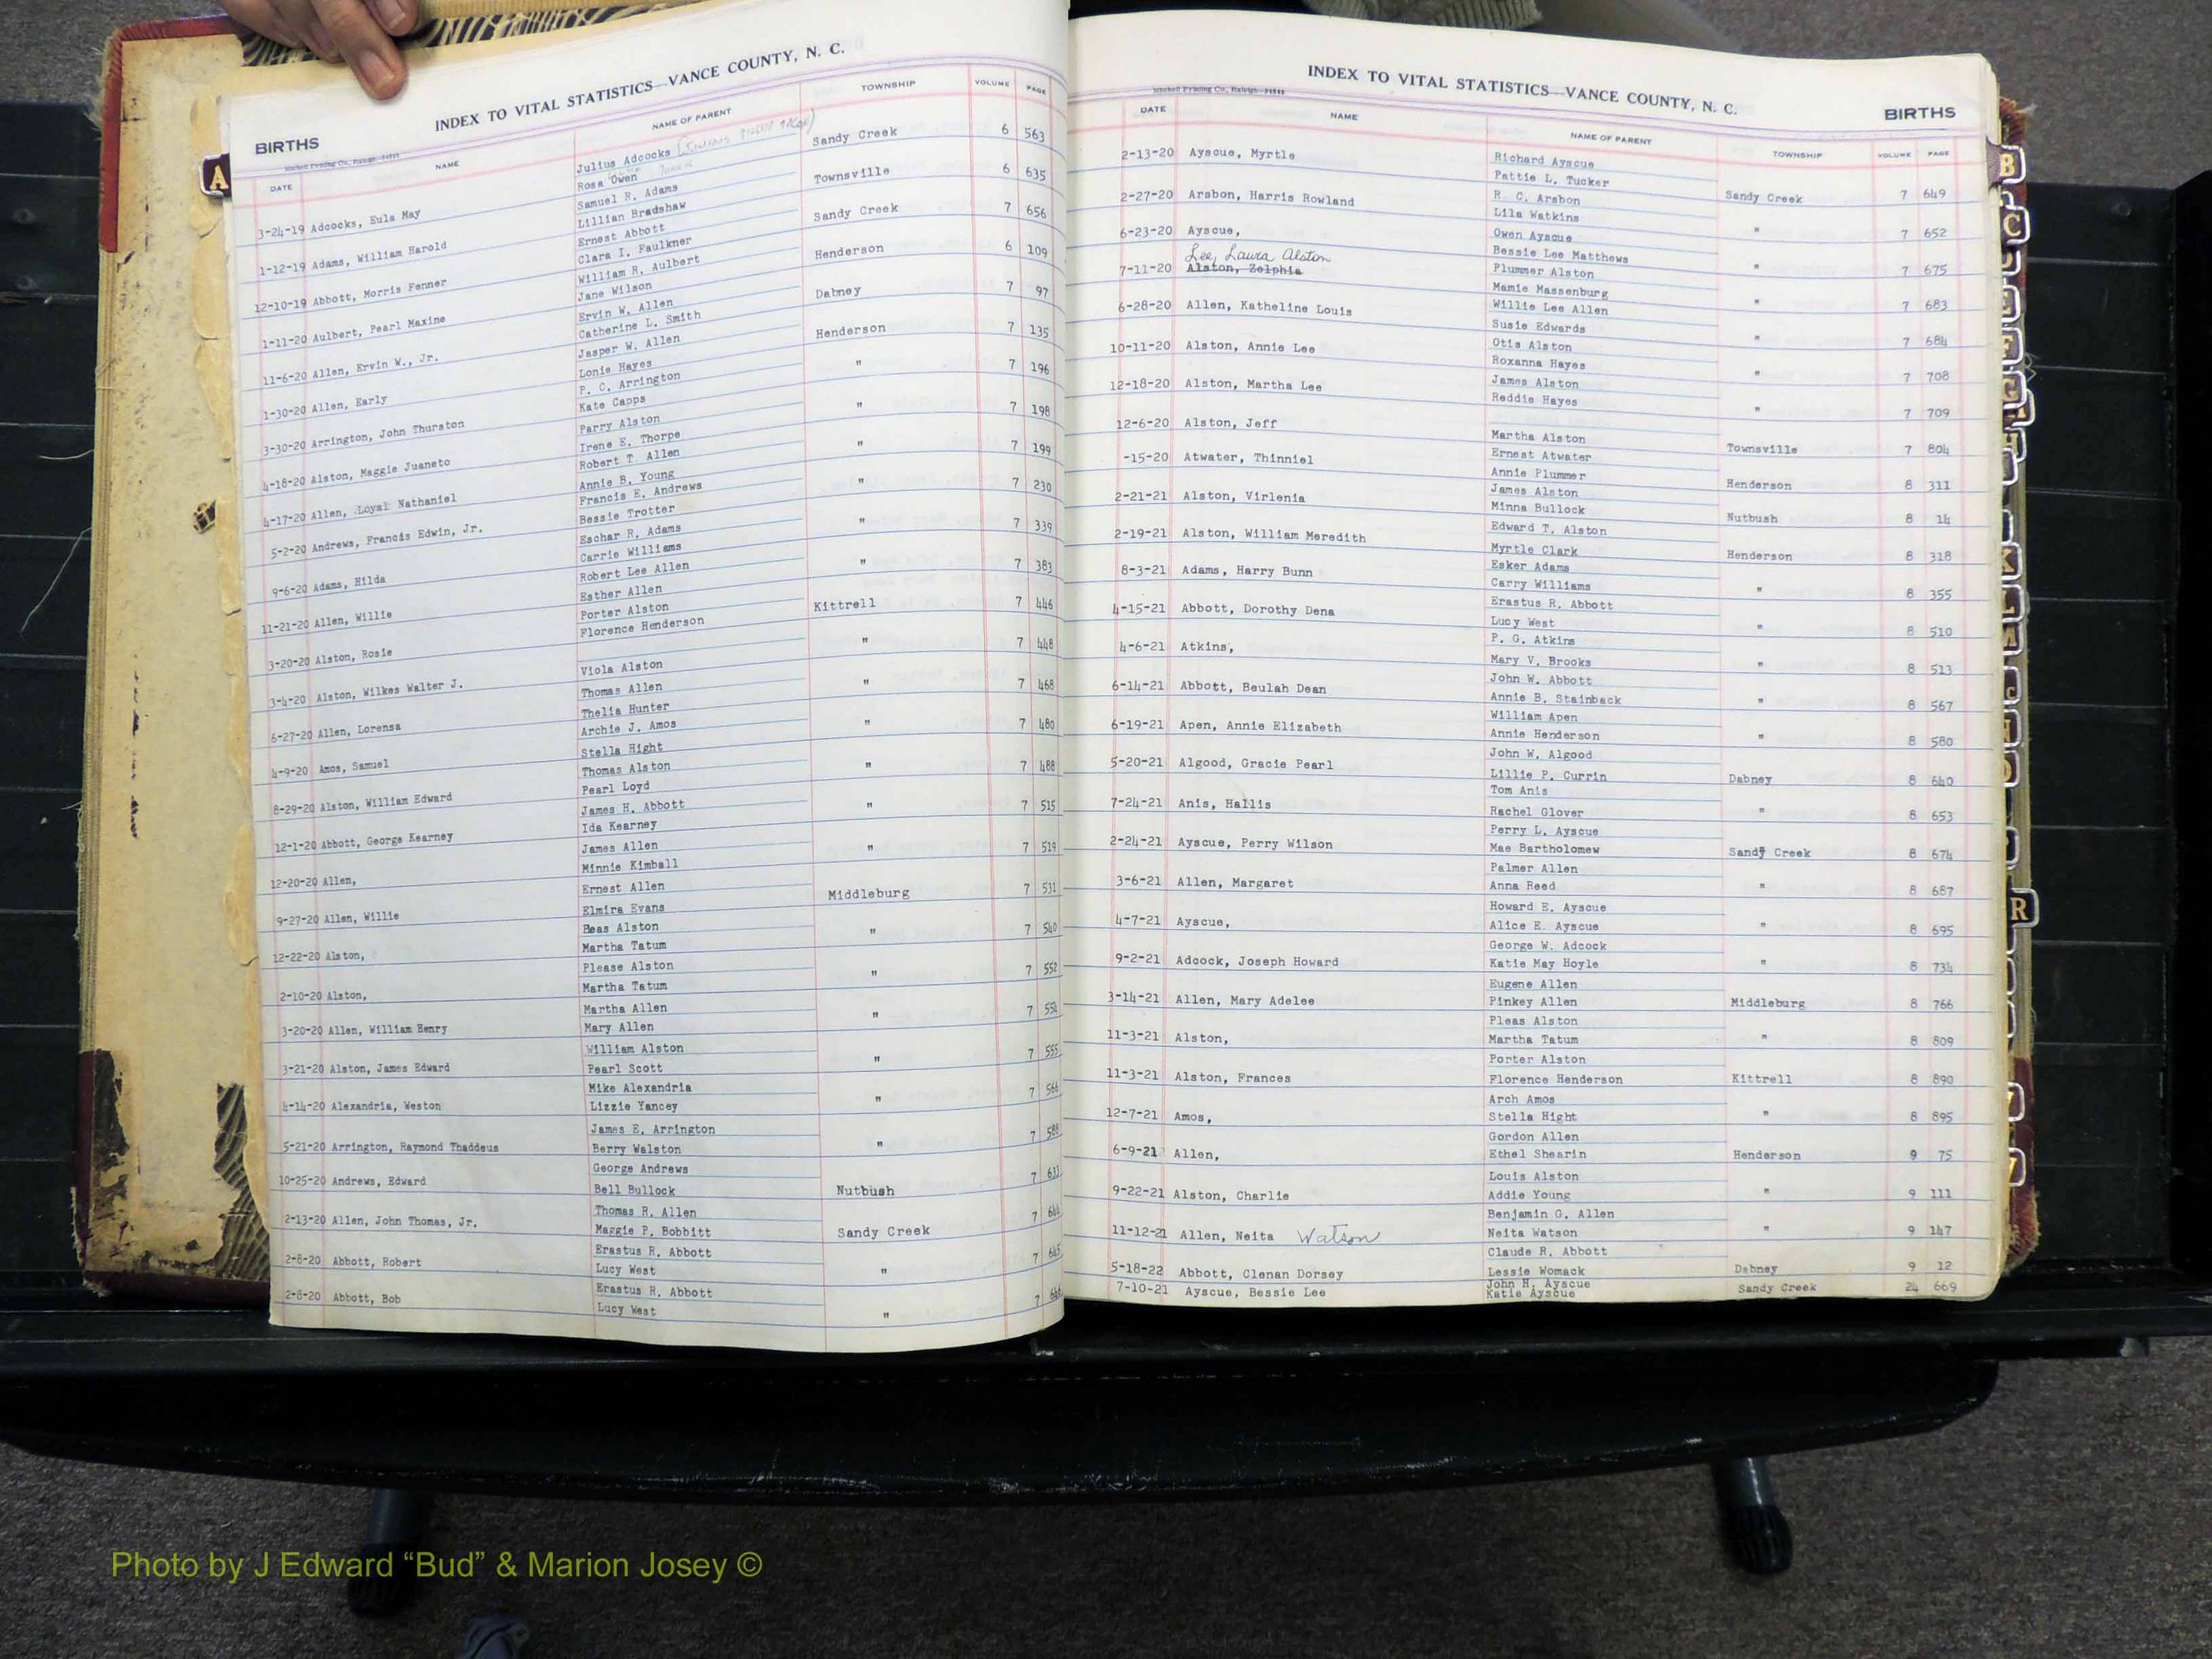 INDEX TO VITAL STATISTICS—VANCE COUNTY, N. C.
BIRTHS
Mitchell Printing Co., Raleigh
DATE NAME NAME OF PARENT TOWNSHIP VOLUME PAGE
A
3-24-19 Adcocks, Eula May Julius Adcocks Sandy Creek 6 563
Rosa Owen
1-12-19 Adams, William Harold Samuel R. Adams Townsville 6 635
Lillian Bradshaw
12-10-19 Abbott, Morris Fenner Ernest Abbott Sandy Creek 7 656
Clara I. Faulkner
1-11-20 Aulbert, Pearl Maxine William R. Aulbert Henderson 6 109
Jane Wilson
11-6-20 Allen, Ervin W., Jr. Ervin W. Allen Dabney 7 97
Catherine L. Smith
1-30-20 Allen, Early Jasper W. Allen Henderson 7 135
Lonie Hayes
3-30-20 Arrington, John Thurston P. C. Arrington " 7 196
Kate Capps
4-18-20 Alston, Maggie Juaneto Parry Alston " 7 198
Irene E. Thorpe
4-17-20 Allen, Loyal Nathaniel Robert T. Allen " 7 199
Annie B. Young
5-2-20 Andrews, Francis Edwin, Jr. Francis E. Andrews " 7 230
Bessie Trotter
9-6-20 Adams, Hilda Eschar R. Adams " 7 339
Carrie Williams
11-21-20 Allen, Willie Robert Lee Allen " 7 383
Esther Allen
3-20-20 Alston, Rosie Porter Alston Kittrell 7 446
Florence Henderson
3-4-20 Alston, Wilkes Walter J. " 7 448
Viola Alston
6-27-20 Allen, Lorensa Thomas Allen " 7 468
Thelia Hunter
4-9-20 Amos, Samuel Archie J. Amos " 7 480
Stella Hight
8-29-20 Alston, William Edward Thomas Alston " 7 488
Pearl Loyd
12-1-20 Abbott, George Kearney James H. Abbott " 7 515
Ida Kearney
12-20-20 Allen, James Allen " 7 519
Minnie Kimball
9-27-20 Allen, Willie Ernest Allen Middleburg 7 531
Elmira Evans
12-22-20 Alston, Beas Alston " 7 540
Martha Tatum
2-10-20 Alston, Please Alston " 7 552
Martha Tatum
3-20-20 Allen, William Henry Martha Allen " 7 554
Mary Allen
3-21-20 Alston, James Edward William Alston " 7 555
Pearl Scott
4-14-20 Alexandria, Weston Mike Alexandria " 7 566
Lizzie Yancey
5-21-20 Arrington, Raymond Thaddeus James E. Arrington " 7 588
Berry Walston
10-25-20 Andrews, Edward George Andrews Nutbush 7 633
Bell Bullock
2-13-20 Allen, John Thomas, Jr. Thomas R. Allen Sandy Creek 7 644
Maggie P. Bobbitt
2-8-20 Abbott, Robert Erastus R. Abbott " 7 645
Lucy West
2-8-20 Abbott, Bob Erastus R. Abbott " 7 646
Lucy West
INDEX TO VITAL STATISTICS—VANCE COUNTY, N. C.
BIRTHS
Mitchell Printing Co., Raleigh
DATE NAME NAME OF PARENT TOWNSHIP VOLUME PAGE
2-13-20 Ayscue, Myrtle Richard Ayscue
Pattie L. Tucker Sandy Creek 7 649
2-27-20 Arsbon, Harris Rowland R. C. Arsbon
Lila Watkins " 7 652
6-23-20 Ayscue, Owen Ayscue
Bessie Lee Matthews " 7 675
Lee, Laura Alston
7-11-20 Alston, Zelphia Plummer Alston
Mamie Massenburg " 7 683
6-28-20 Allen, Katheline Louis Willie Lee Allen
Susie Edwards " 7 684
10-11-20 Alston, Annie Lee Otis Alston
Roxanna Hayes " 7 708
12-18-20 Alston, Martha Lee James Alston
Reddie Hayes " 7 709
12-6-20 Alston, Jeff
Martha Alston Townsville 7 804
-15-20 Atwater, Thinniel Ernest Atwater
Annie Plummer Henderson 8 311
2-21-21 Alston, Virlenia James Alston
Minna Bullock Nutbush 8 14
2-19-21 Alston, William Meredith Edward T. Alston
Myrtle Clark Henderson 8 318
8-3-21 Adams, Harry Bunn Esker Adams
Carry Williams " 8 355
4-15-21 Abbott, Dorothy Dena Erastus R. Abbott
Lucy West " 8 510
4-6-21 Atkins, P. G. Atkins
Mary V. Brooks " 8 513
6-14-21 Abbott, Beulah Dean John W. Abbott
Annie B. Stainback " 8 567
6-19-21 Apen, Annie Elizabeth William Apen
Annie Henderson " 8 580
5-20-21 Algood, Gracie Pearl John W. Algood
Lillie P. Currin Dabney 8 640
7-24-21 Anis, Hallis Tom Anis
Rachel Glover " 8 653
2-24-21 Ayscue, Perry Wilson Perry L. Ayscue
Mae Bartholomew Sandy Creek 8 674
3-6-21 Allen, Margaret Palmer Allen
Anna Reed " 8 687
4-7-21 Ayscue, Howard E. Ayscue
Alice E. Ayscue " 8 695
9-2-21 Adcock, Joseph Howard George W. Adcock
Katie May Hoyle " 8 734
3-14-21 Allen, Mary Adelee Eugene Allen
Pinkey Allen Middleburg 8 766
11-3-21 Alston, Pleas Alston
Martha Tatum " 8 809
11-3-21 Alston, Frances Porter Alston
Florence Henderson Kittrell 8 890
12-7-21 Amos, Arch Amos
Stella Hight " 8 895
6-9-21 Allen, Gordon Allen
Ethel Shearin Henderson 9 75
9-22-21 Alston, Charlie Louis Alston
Addie Young " 9 111
11-12-21 Allen, Neita Watson Benjamin G. Allen
Neita Watson " 9 147
5-18-22 Abbott, Clenan Dorsey Claude R. Abbott
Lessie Womack Dabney 9 12
7-10-21 Ayscue, Bessie Lee John H. Ayscue
Katie Ayscue Sandy Creek 24 669
B
C
F
G
H
K
L
M
R
Photo by J Edward “Bud” & Marion Josey ©